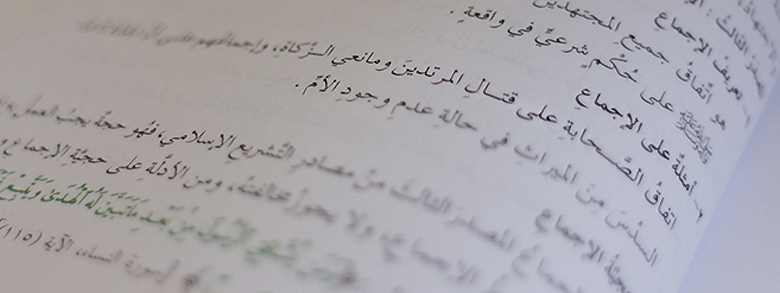 المصدر الثالث: ال
١- تعريف الإجماع
هو اتّفاقُ جميعِ المجتهدين
ﷺ على حُكْمٍ شرعيٍّ في واقعةٍ.
٢- أمثلةٌ على الإجماعِ
اتّفاقُ الصَّحابةِ على قتالِ المرتدين ومانعي الزّكاةِ، وإجماعُهم
السدسَ مِنَ الميراثِ في حالةِ عدمِ وجودِ الأمِّ.
حجيّةُ الإجماعِ
الإجماعُ المصدرُ الثالثُ من مصادرِ التّشريعِ الإسلاميِّ، فهُو حجةٌ يجبُ العملُ به
الإجماعِ، ولا يجوزُ مخالفتُه، ومن الأدلّةِ على حجيّةِ الإجماعِ
يُشَاقِقِ الرَّسُولَ مِنْ بَعْدِ مَا تَبَيَّنَ لَهُ الْهُدَىٰ وَيَتَّبِعْ
[سورة النساء، الآية (١١٥)